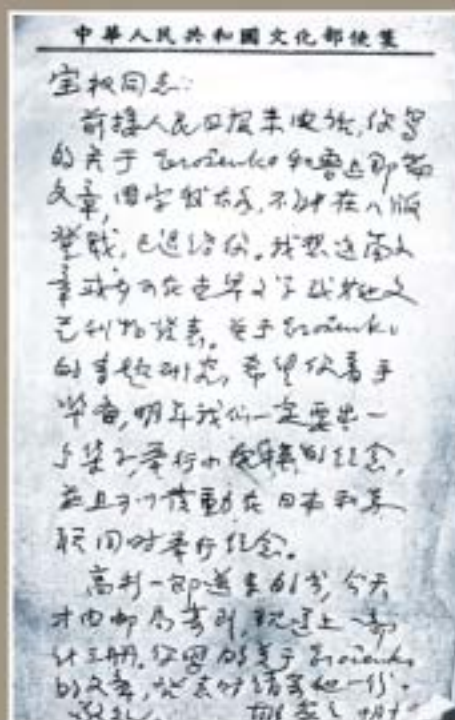 中華人民共和國文化部便箋
宝权同志:
前接人民日报来电话,你写
的关于 Erošenko 和鲁迅那篇
文章,因字数太多,不能在八版
登载,已退给你。我想这篇文
章或可在世界文学或其他文
艺刊物发表。关于 Erošenko
的专题研究,希望你着手
准备,明年我们一定要出一
集子,举行小规模的纪念,
并且可以发动在日本和苏
联同时举行纪念。
高利一郎送来的书,今天
才由邮局寄到,现送上一部
计三册。你写的关于 Erošenko
的文章,发表时请寄他一份。
敬礼